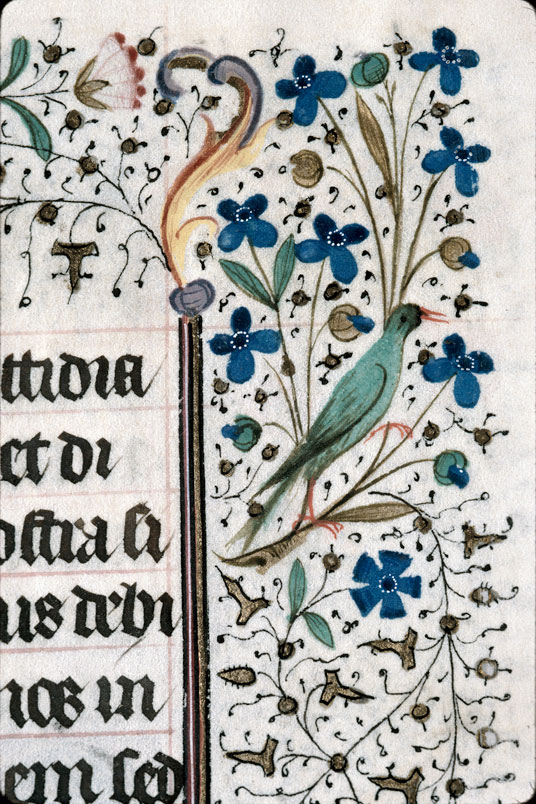 ttidia
et di
ostra si
us debi
nos in
em sed